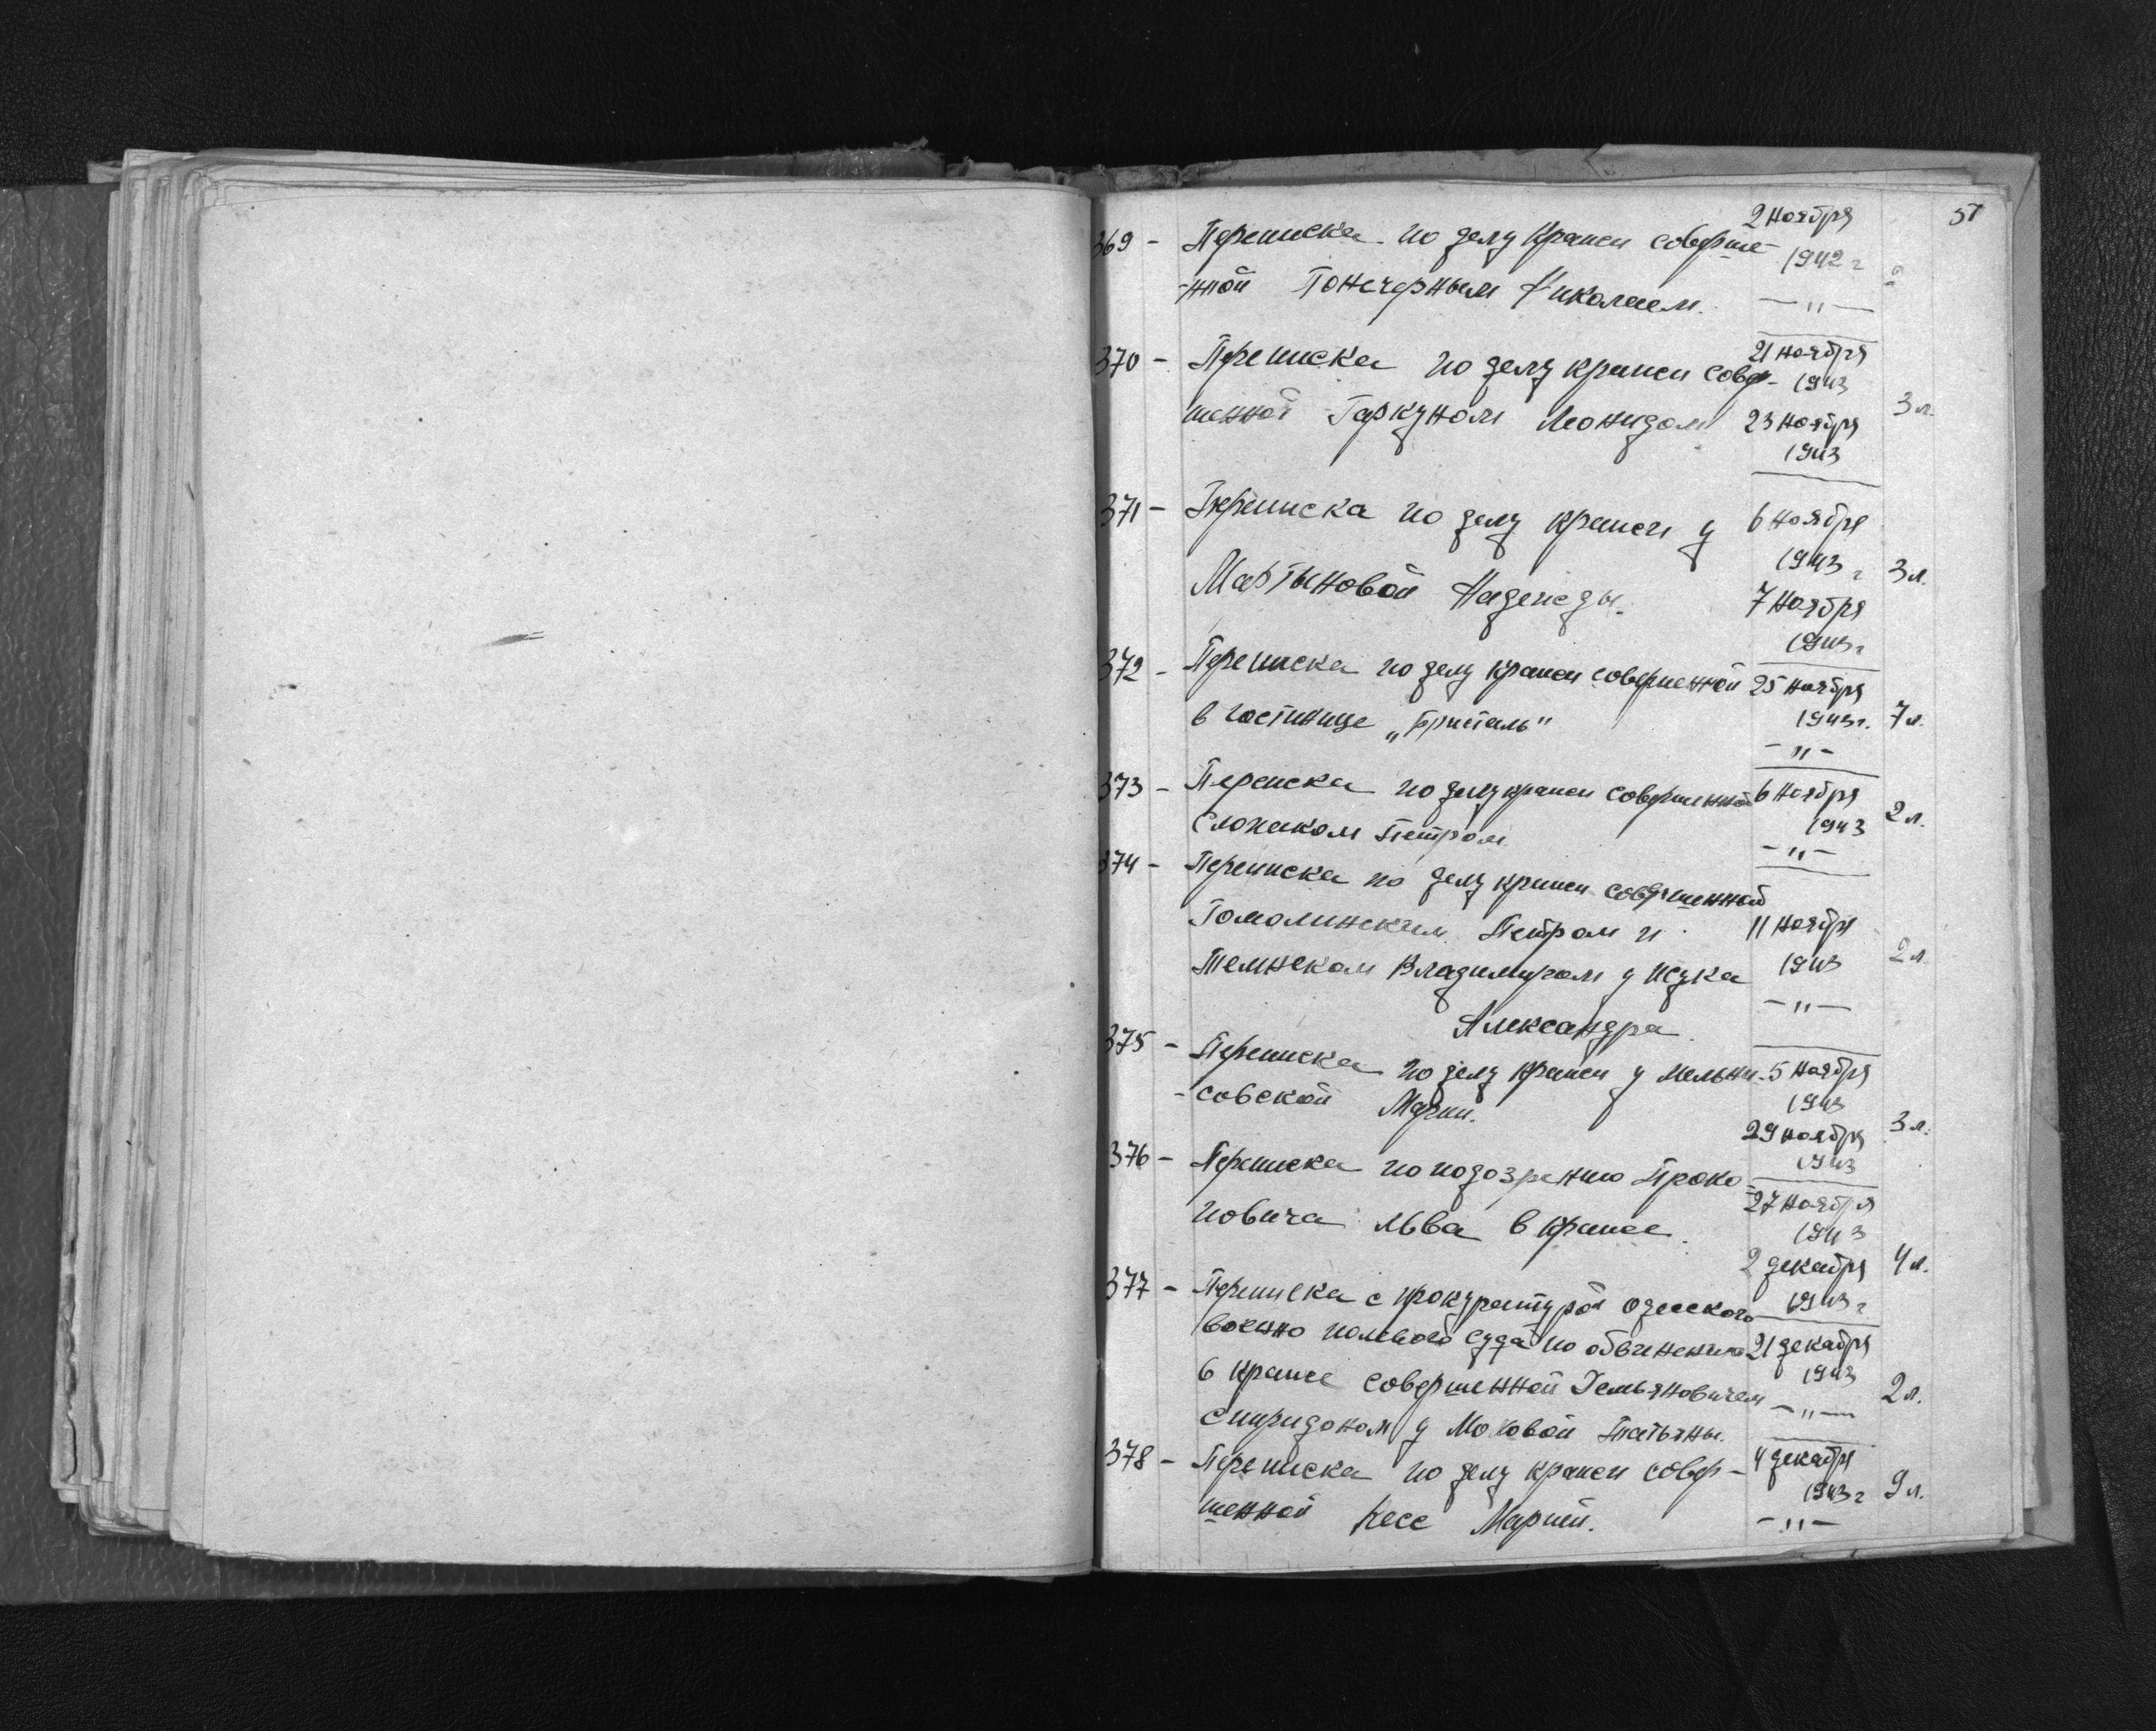 57
369 - Переписка по делу кражи соверше- 2 ноября 1942 г
-нной Понечерным Николаем. — " —
370 - Переписка по делу кражи совер- 21 ноября 1943
шенной Гаркуном Леонидом 23 ноября 1943 3 л.
371 - Переписка по делу кражи у 6 ноября 1943 г 3 л.
Мартыновой Надежды. 7 ноября 1943 г
372 - Переписка по делу кражи совершенной 25 ноября
в гостинице „Бристоль" 1943 г. 7 л.
- " -
373 - Переписка по делу кражи совершенной 6 ноября
Слонаком Петром. 1943 2 л.
- " -
374 - Переписка по делу кражи совершенной
Гомолинским Петром и 11 ноября
Владимиром у Жука 1943 2 л.
Александра — " —
375 - Переписка по делу кражи у Мельни- 5 ноября 1943
-совской Марии. 29 ноября 1943 3 л.
376 - Переписка по подозрению Проко- 27 ноября 1943
повича Льва в краже. 2 декабря 1943 г 4 л.
377 - Переписка с прокуратурой одесского
военно полевого суда по обвинению 21 декабря
в краже совершенной Демьяновичем 1943 2 л.
Спиридоном у Моховой Татьяны. — " —
378 - Переписка по делу кражи совер- 4 декабря
шенной Кесс Марией. 1943 г 9 л.
- " -